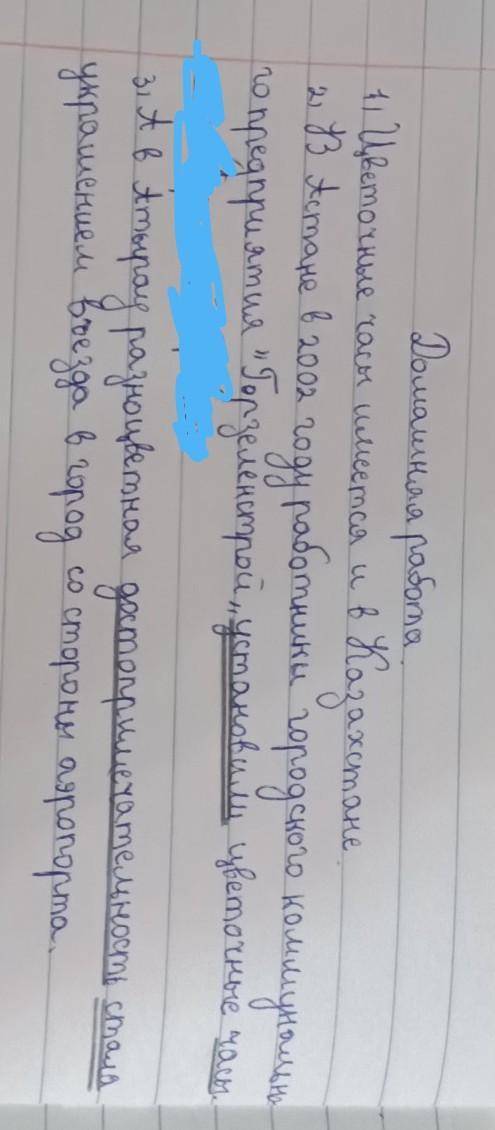 Домашняя работа.
1) Цветочные часы имеется и в Казахстане.
2) УЗ Астане в 2002 году работники городского коммунально
го предприятия „Горзеленстрой„ установили цветочные часы.
3) А в Атырау разноцветная достопримечательность стала
украшением въезда в город со стороны аэропорта.